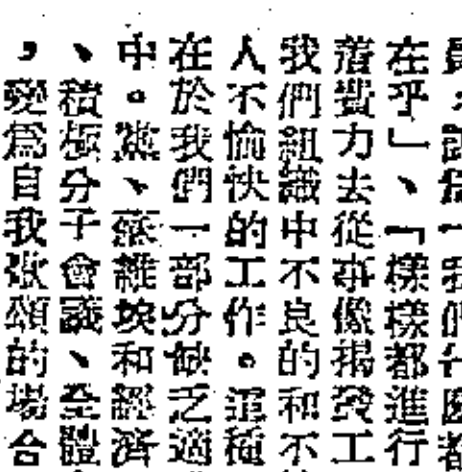 在乎」、「樣樣都進行
着費力去從事像揭發工
我們組織中不良的和不
人不愉快的工作。這種
在於我們一部分缺乏適
中。黨、蘇維埃和經濟
、積極分子會議、全體
，變爲自我頌的場合